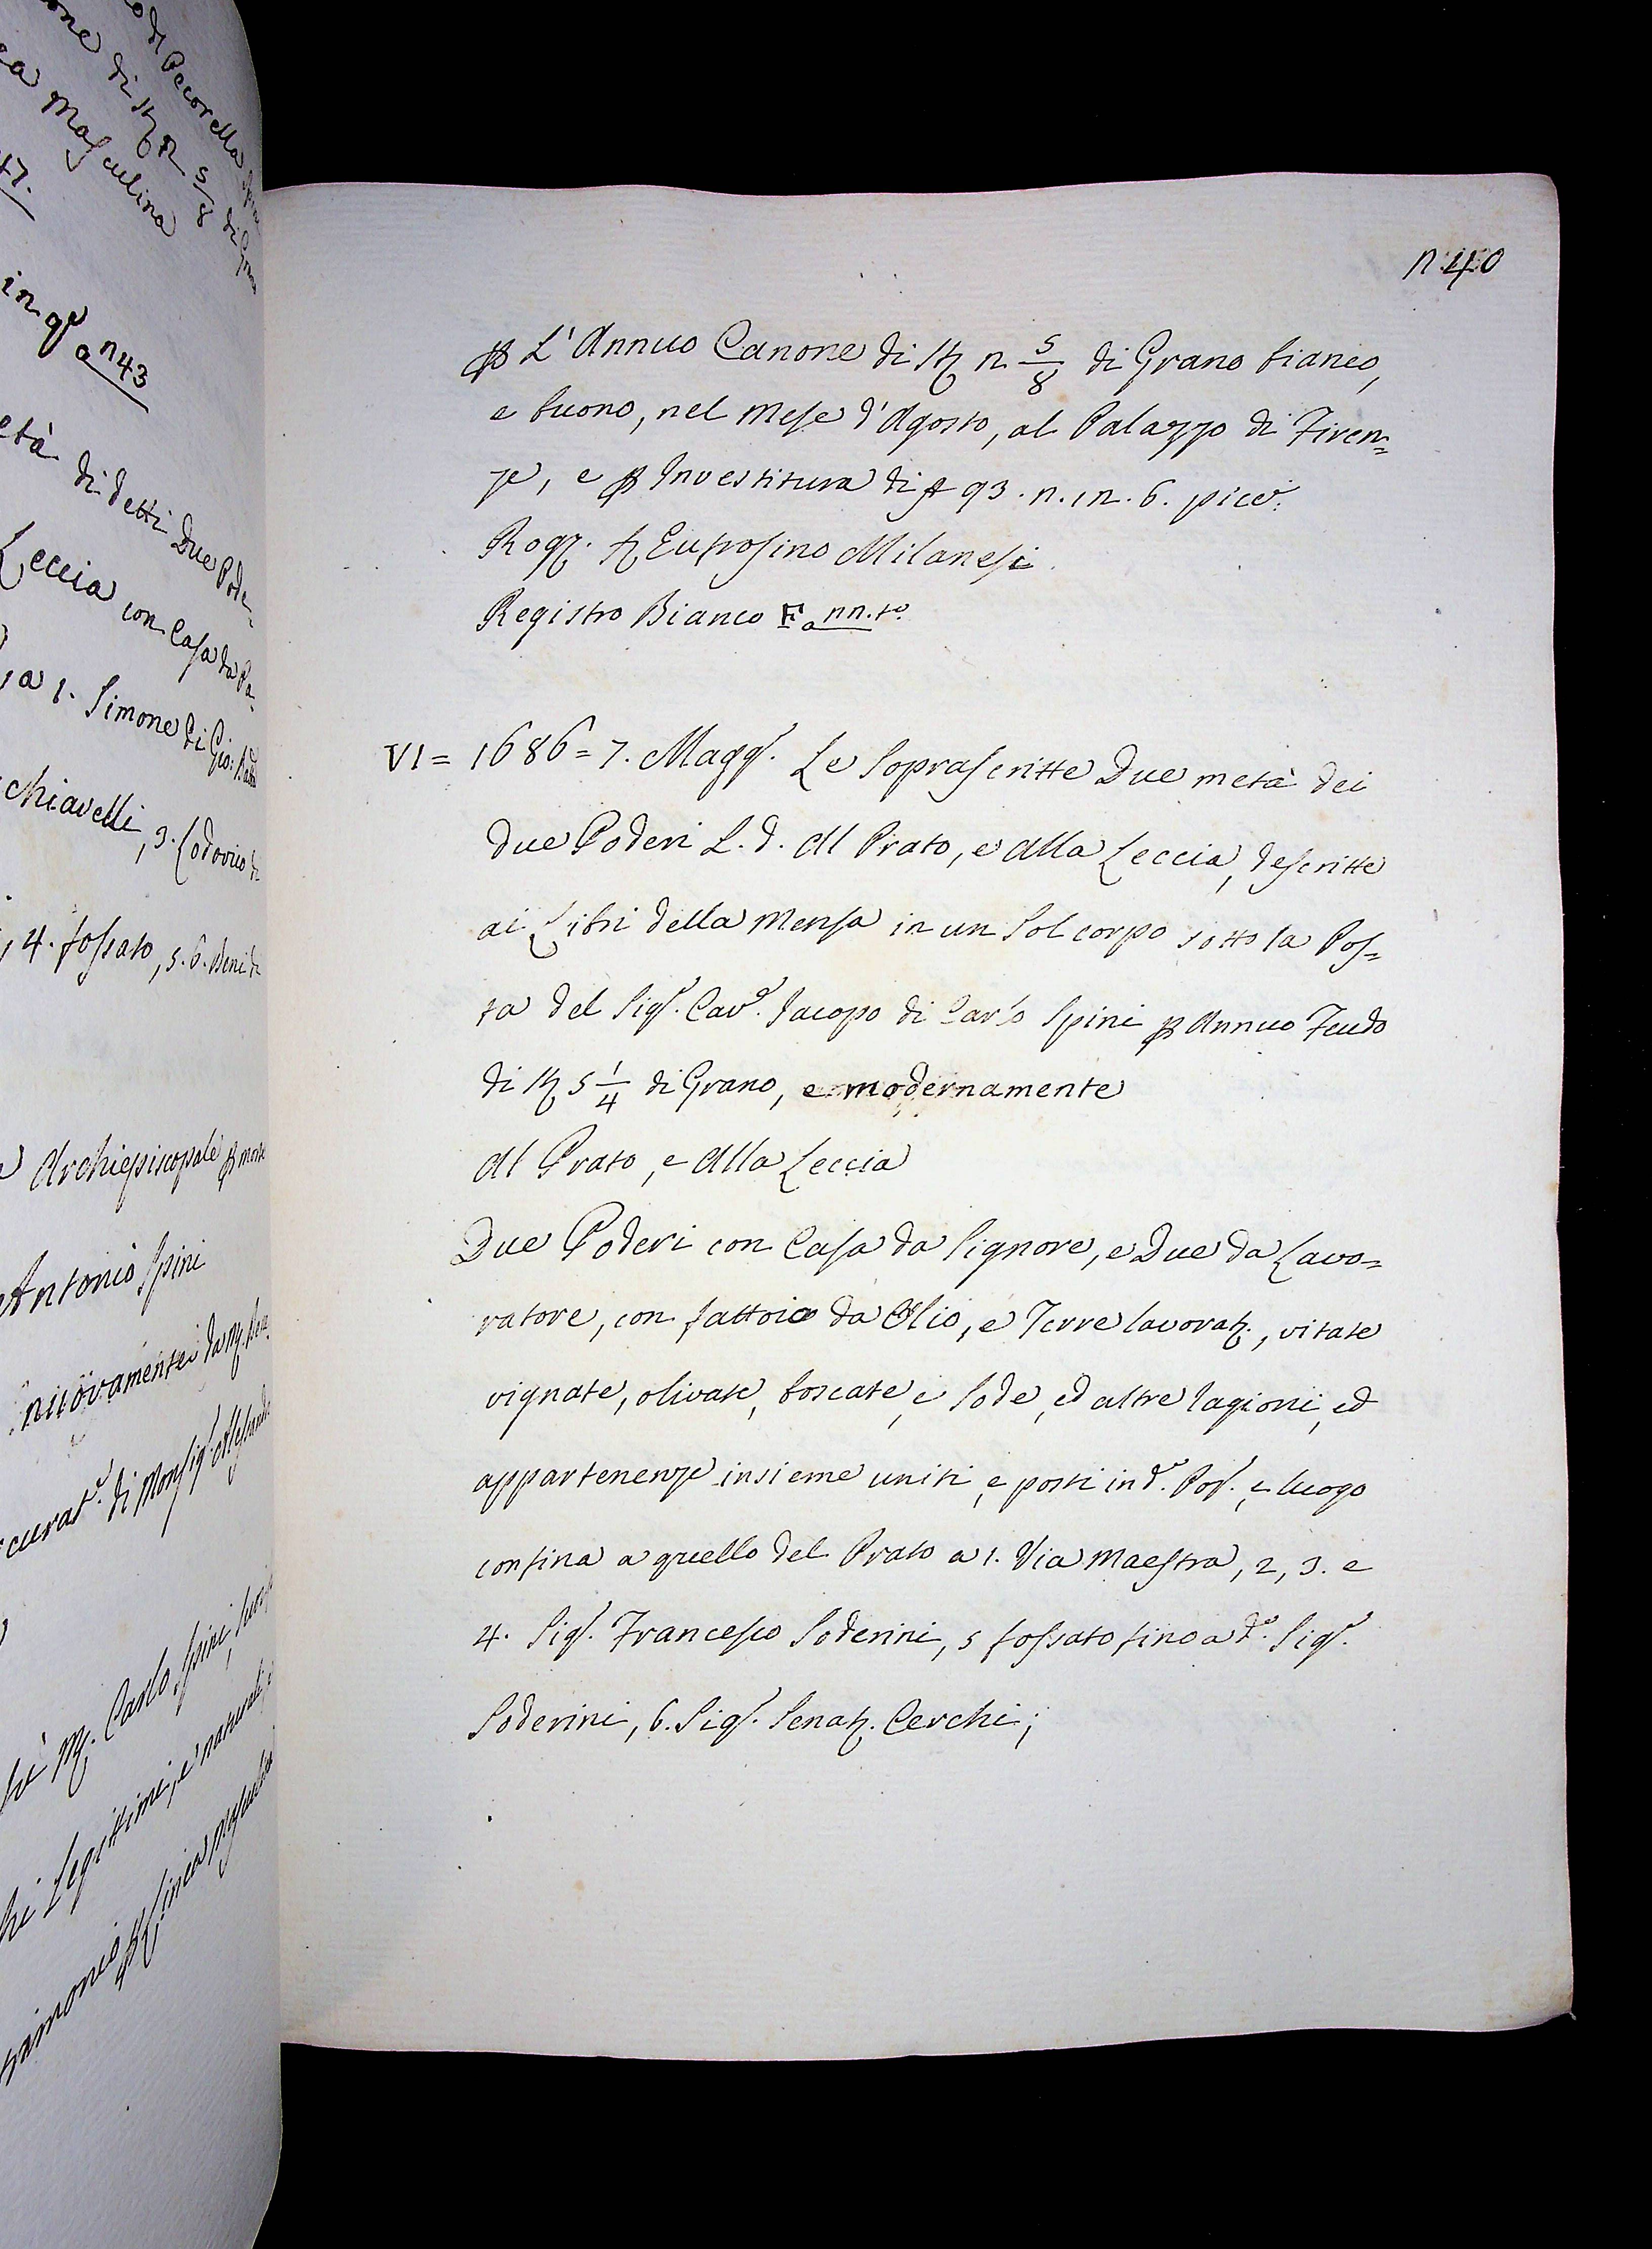 o di Pecorella
one di St. 2 5/8 di Gran
ea Masculina
47.
in q.o a n43
età di detti Due Pode-
Leccia con Casa da Pa-
a 1. Simone di Gio: Batta
chiavelli, 3. Lodovico di
, 4. fossato, 5. 6. Beni di
Archiepiscopale p morte
Antonio Spini
nuovamente da
curat.e di Monsig.r Alessandro
M. Carlo Spini, suoi
Legittimi, e naturali
linea masculina
n.40
p L'Annuo Canone di St. 2 5/8 di Grano bianco,
e buono, nel Mese d'Agosto, al Palazzo di Firen=
ze, e p Investitura di 93. 2. 12. 6. picc.
Rog. Eufrosino Milanesi
Registro Bianco F a 22. t.o
VI = 1686 = 7. Magg.o Le Soprascritte Due metà dei
due Poderi L. d. Al Prato, e Alla Leccia, descritte
ai Libri della Mensa in un Sol corpo sotto la Pos=
ta del Sig.r Cav.e Jacopo di Carlo Spini p Annuo Feudo
di St. 5 1/4 di Grano, e modernamente
Al Prato, e Alla Leccia
Due Poderi con Casa da Signore, e Due da Lavo=
ratore, con fattoio da Olio, e Terre lavorat., vitate
vignate, olivate, boscate, e sode, ed altre ragioni, ed
appartenenze insieme uniti, e posti in d.o Pop. e luogo
confina a quello del Prato a 1. Via Maestra, 2, 3. e
4. Sig.r Francesco Soderini, 5 fossato fino a d.o Sig.r
Soderini, 6. Sig.r Senat. Cerchi;